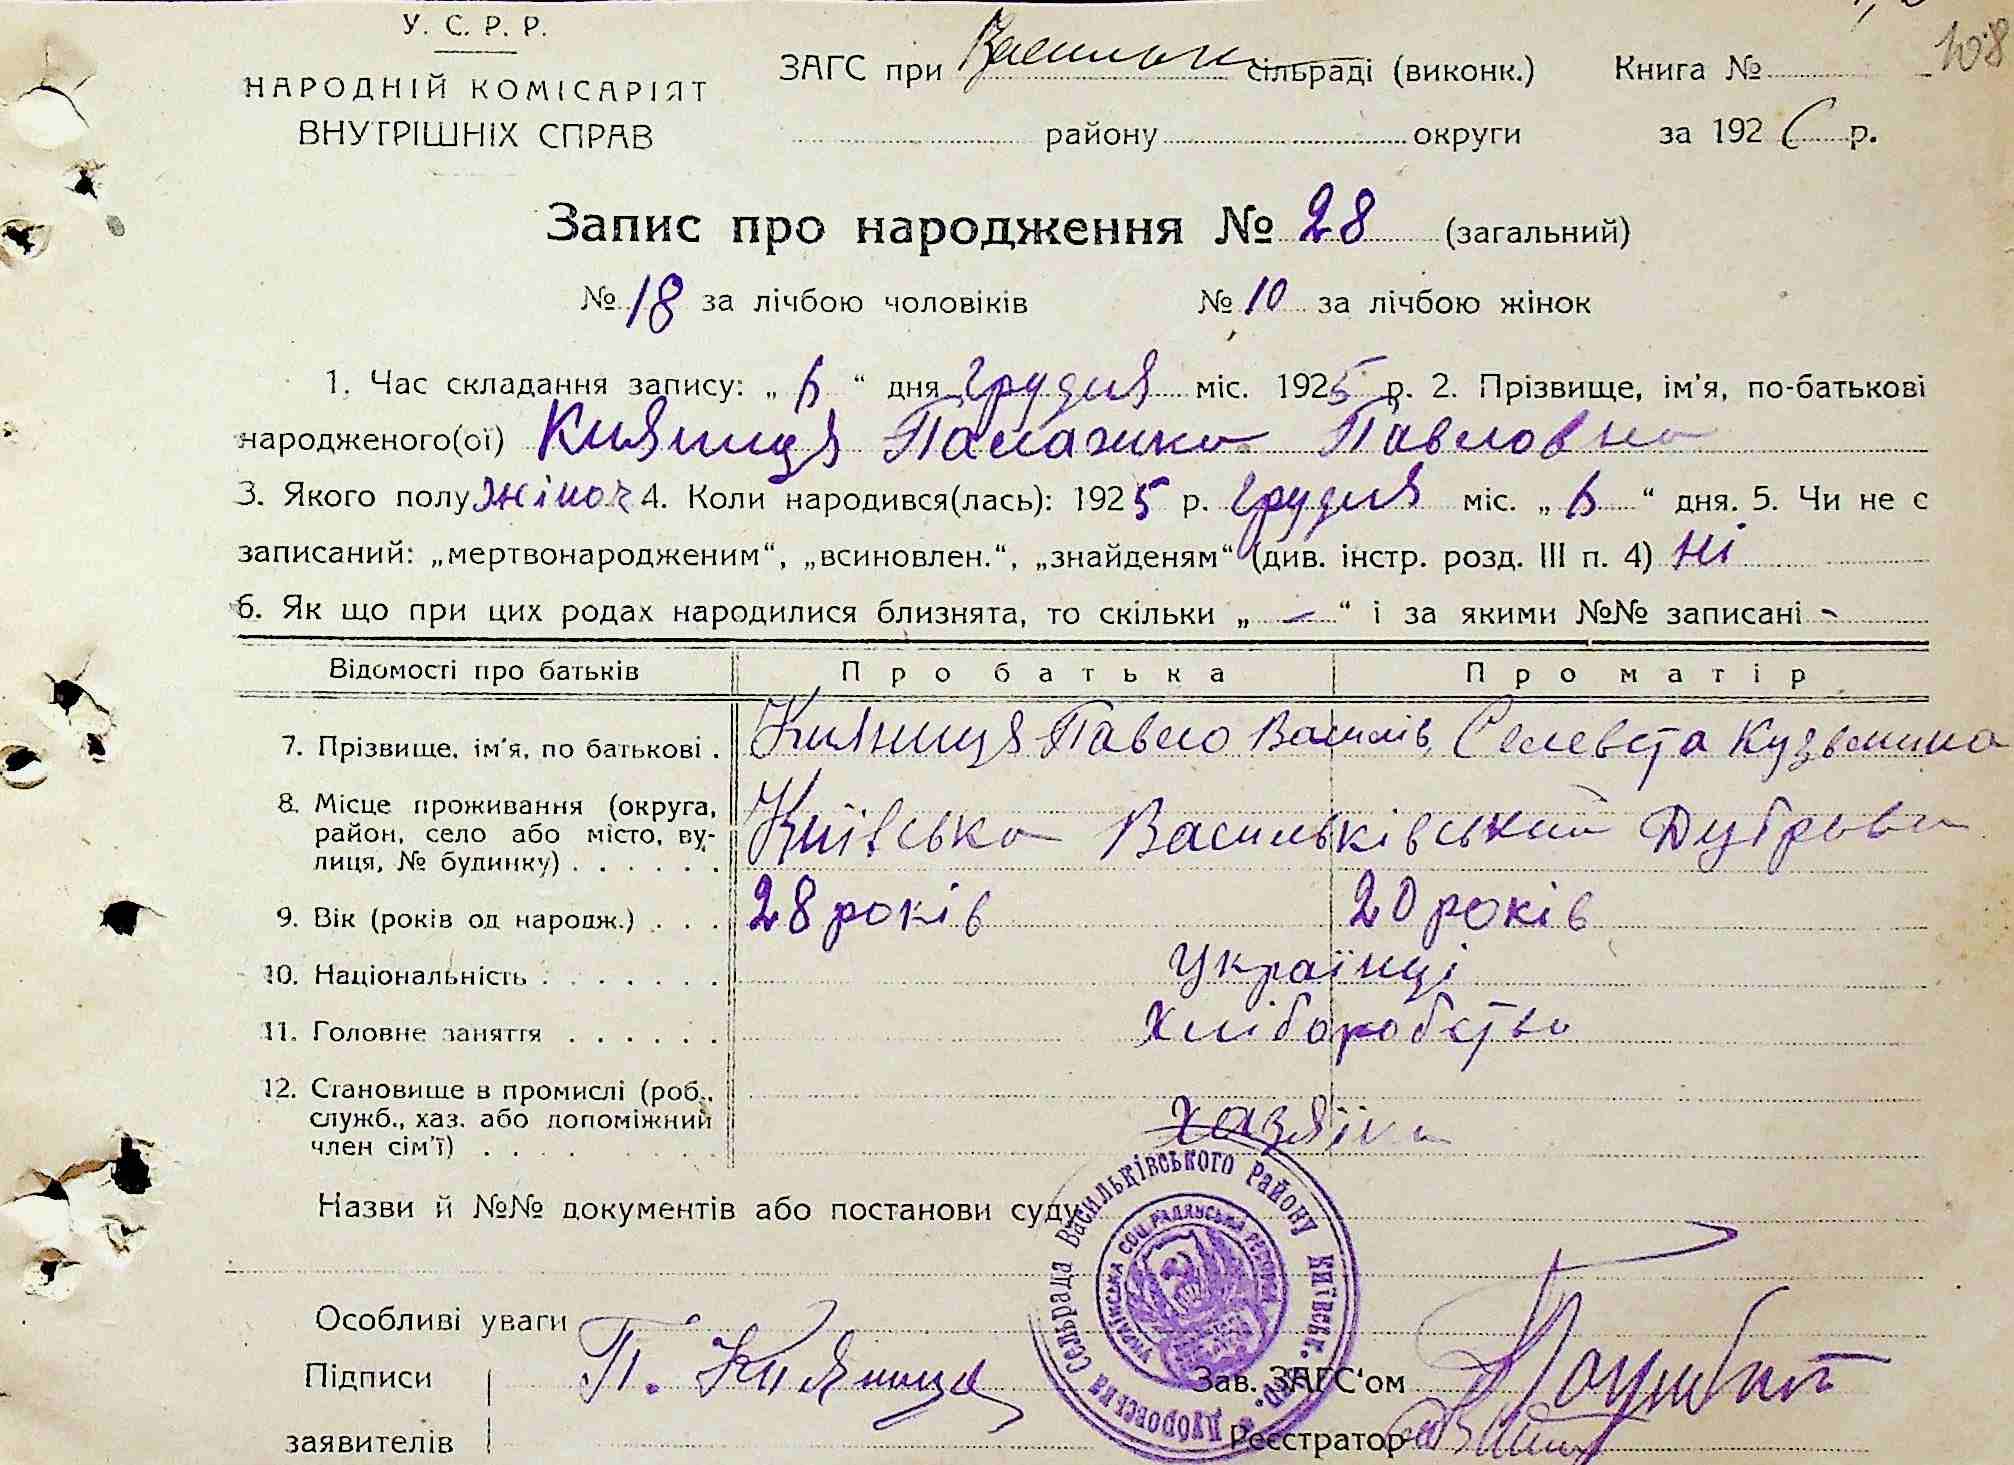 У. С. Р. Р.
НАРОДНІЙ КОМІСАРІЯТ
ВНУТРІШНІХ СПРАВ
ЗАГС при сільраді (виконк.) Книга № 108
району округи за 192 р.
Запис про народження № 28 (загальний)
№ 18 за лічбою чоловіків № 10 за лічбою жінок
1. Час складання запису: „ 6 “ дня грудня міс. 1925 р. 2. Прізвище, ім'я, по-батькові
народженого(ої) Кияниця Палажка Павловна
3. Якого полу жіноч 4. Коли народився(лась): 1925 р. грудня міс. „ 6 “ дня. 5. Чи не є
записаний: „мертвонародженим“, „всиновлен.“, „знайденям“ (див. інстр. розд. III п. 4) Ні
6. Як що при цих родах народилися близнята, то скільки „ – “ і за якими №№ записані -
Відомості про батьків Про батька Про матір
7. Прізвище, ім'я, по батькові . Кияниця Павло Василів Селевста Кузьмина
8. Місце проживання (округа, район, село або місто, вулиця, № будинку) . . . . . . Київська Васильківський Дуброви
9. Вік (років од народж.) . . . 28 років 20 років
10. Національність . . . . . . . Українці
11. Головне заняття . . . . . . Хліборобство
12. Становище в промислі (роб., служб., хаз. або допоміжний член сім'ї) . . . . Хазяїни
Назви й №№ документів або постанови суду
Особливі уваги
Підписи П. Кияница Зав. ЗАГС'ом
заявителів Реєстратор
Сельрада Васильківського району Київськ.
УКРАЇНСЬКА СОЦ. РАДЯНСЬКА